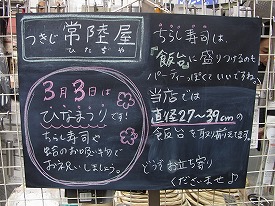 つきじ 常陸屋
ひたちや
3月3日は
ひなまつりです!
ちらし寿司や
蛤のお吸い物で
お祝いしましょう。
ちらし寿司は、
『飯台』に盛りつけるのも
パーティーっぽくていいですね。
当店では
直径27〜39cmの
飯台を取り揃えてます。
どうぞお立ち寄り
くださいませ♪